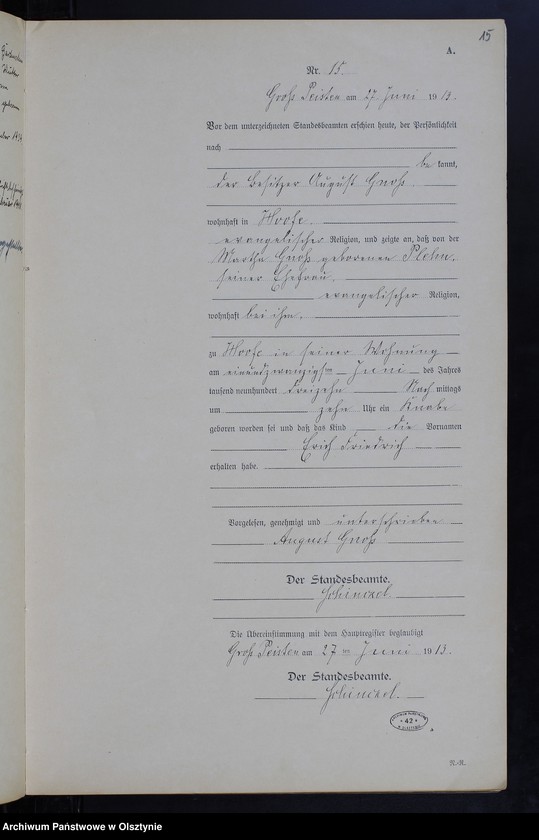 15
A.
Nr. 15
Groß Peisten am 27 Juni 1913.
Vor dem unterzeichneten Standesbeamten erschien heute, der Persönlichkeit
nach
be kannt,
der Besitzer August Gnoß
wohnhaft in Woofe.
evangelischer Religion, und zeigte an, daß von der
Martha Gnoß geborenen Plehn,
seiner Ehefrau,
evangelischer Religion,
wohnhaft bei ihm,
zu Woofe in seiner Wohnung
am einundzwanzigsten Juni des Jahres
tausend neunhundert dreizehn Nach mittags
um zehn Uhr ein Knabe
geboren worden sei und daß das Kind die Vornamen
Erich Friedrich
erhalten habe.
Vorgelesen, genehmigt und unterschrieben
August Gnoß
Der Standesbeamte.
Die Übereinstimmung mit dem Hauptregister beglaubigt
Groß Peisten am 27 ten Juni 1913.
Der Standesbeamte.
42
Archiwum Państwowe w Olsztynie